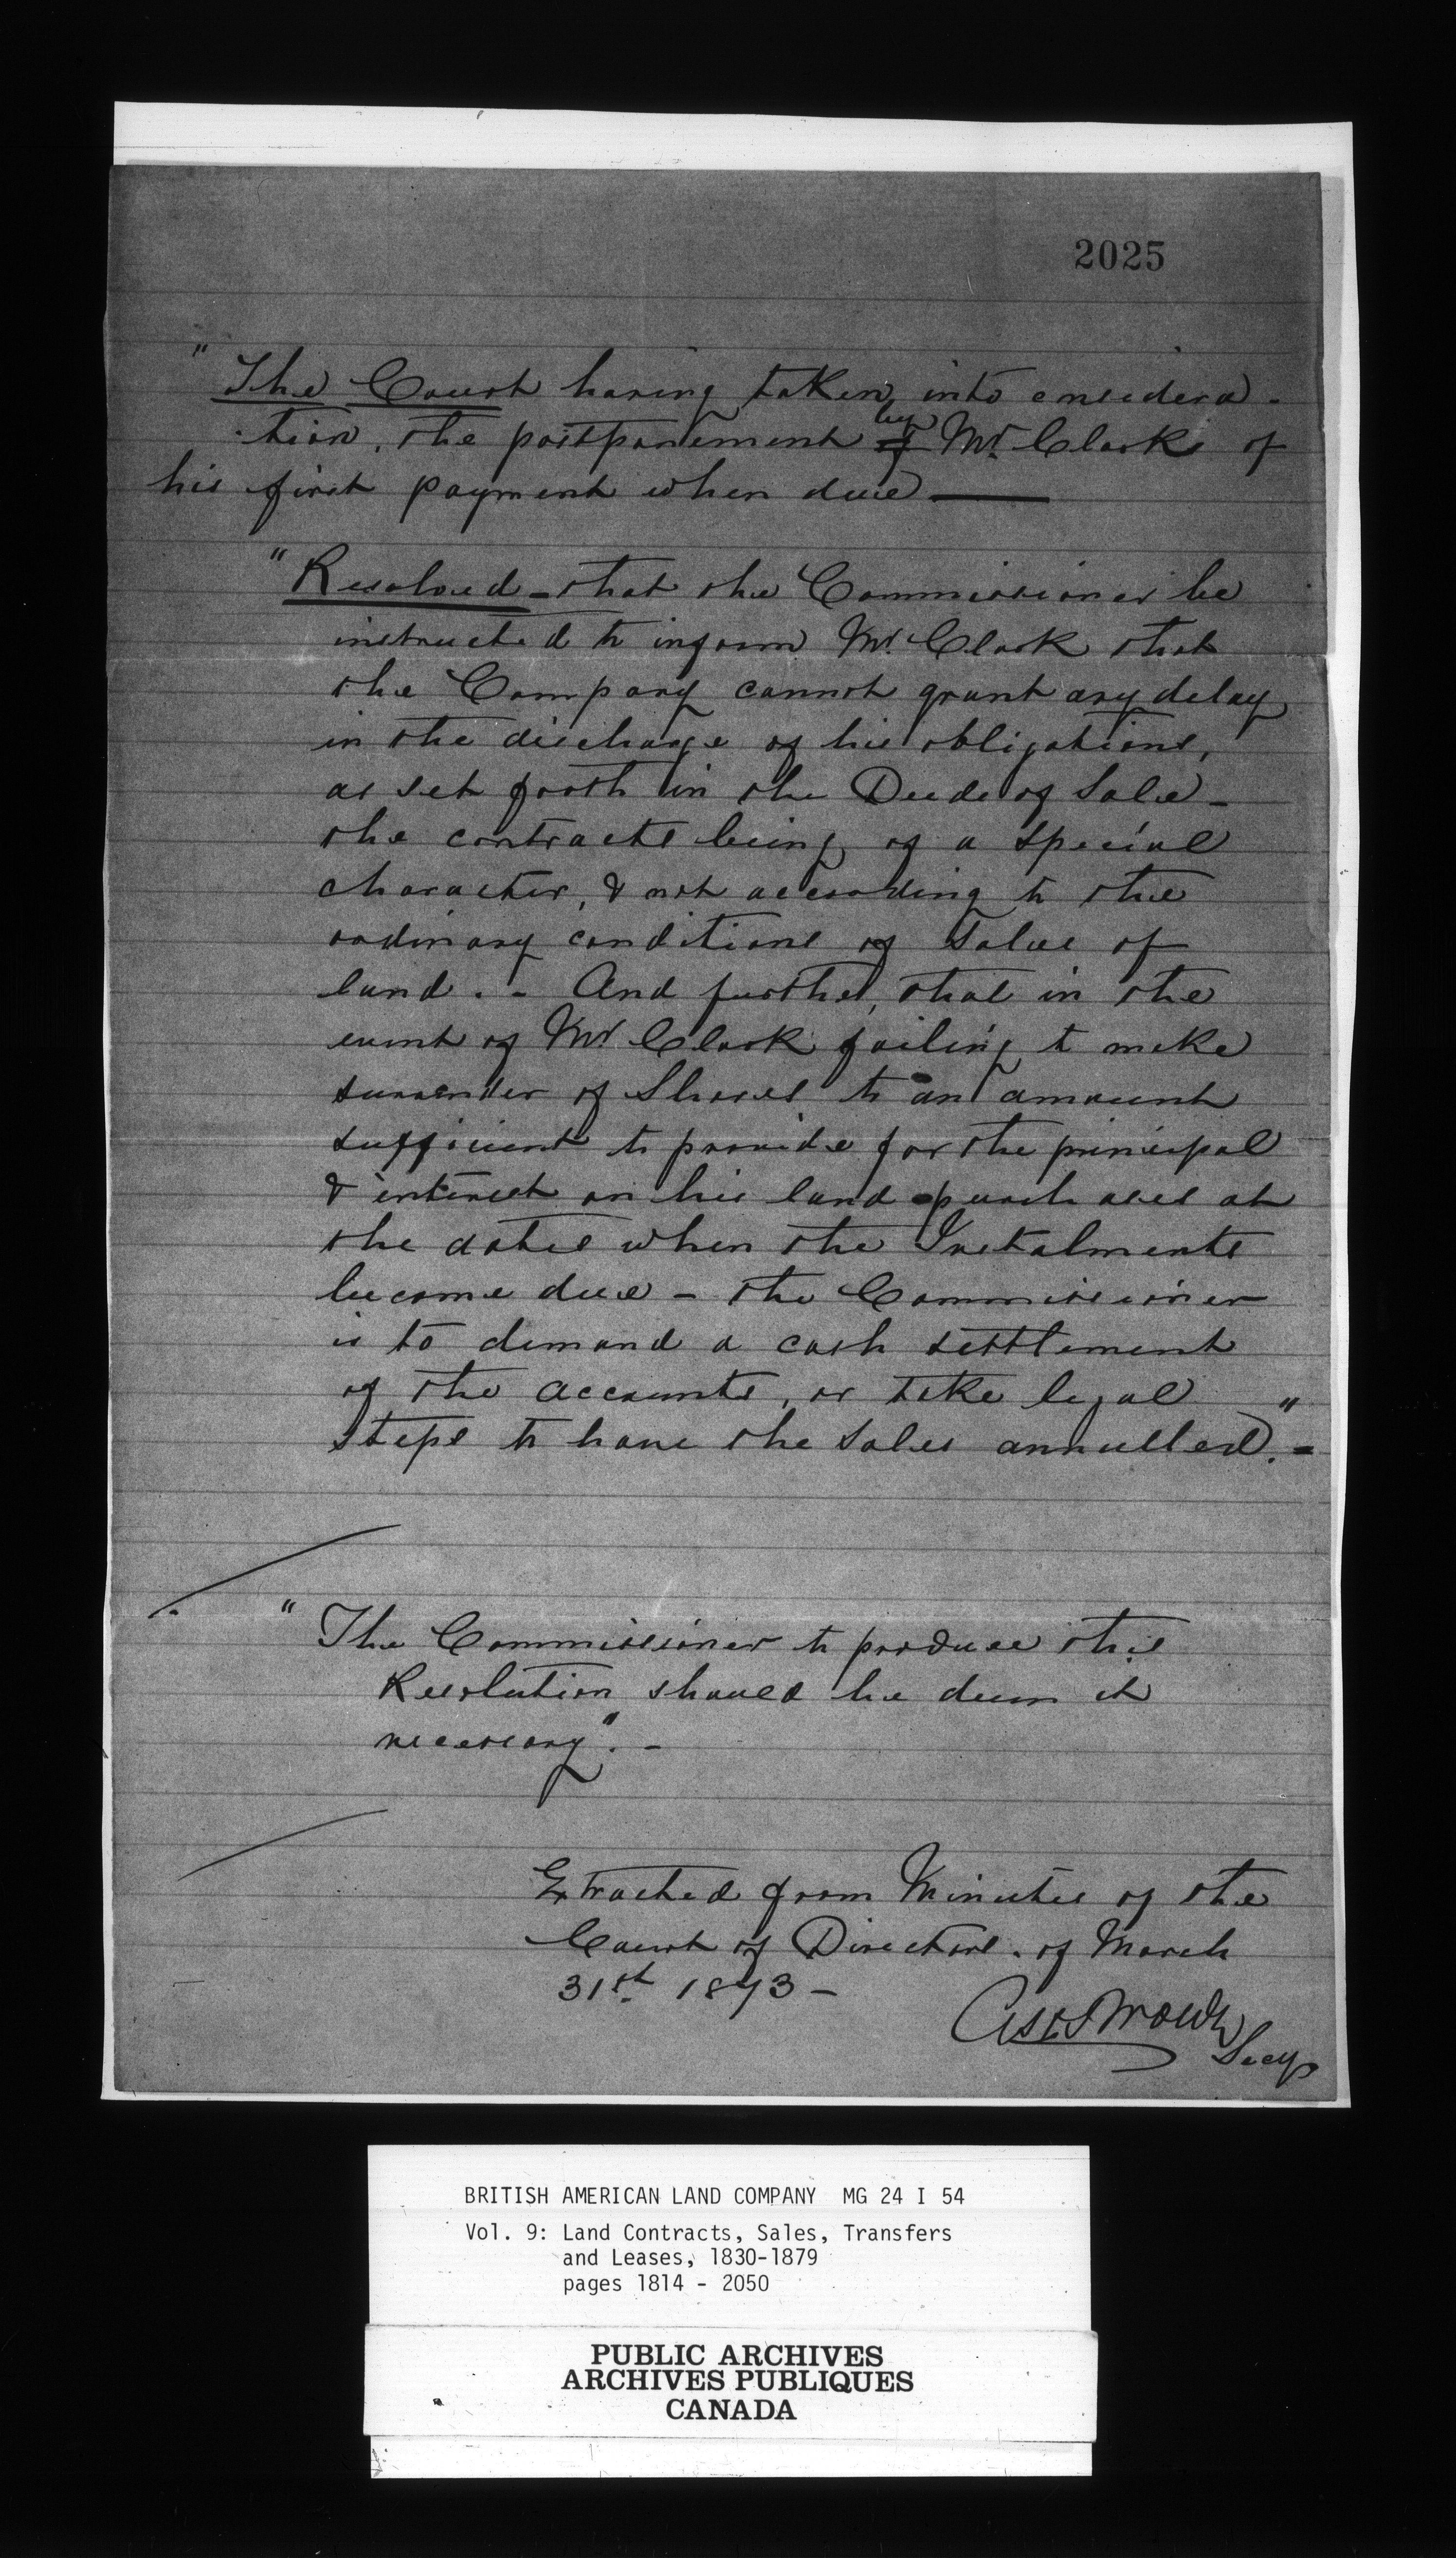 2025
" The Court having taken into considera-
-tion, the postponement of by Mr. Clarke of
his first payment when due —
" Resolved - that the Commissioner be
instructed to inform Mr. Clark that
the Company cannot grant any delay
in the discharge of his obligations,
as set forth in the Deeds of Sale -
the contracts being of a special
character, & not according to the
ordinary conditions of Sales of
land. - And further, that in the
event of Mr Clark failing to make
surrender of Shares to an amount
sufficient to provide for the principal
& interest on his land purchases at
the dates when the Instalments
become due - the Commissioner
is to demand a cash settlement
of the accounts, or take legal
steps to have the Sales annulled." -
" The Commissioner to produce this
Resolution should he deem it
necessary". -
Extracted from Minutes of the
Court of Directors. of March
31st. 1873 -
Secy
BRITISH AMERICAN LAND COMPANY MG 24 I 54
Vol. 9: Land Contracts, Sales, Transfers
and Leases, 1830-1879
pages 1814 - 2050
PUBLIC ARCHIVES
ARCHIVES PUBLIQUES
CANADA